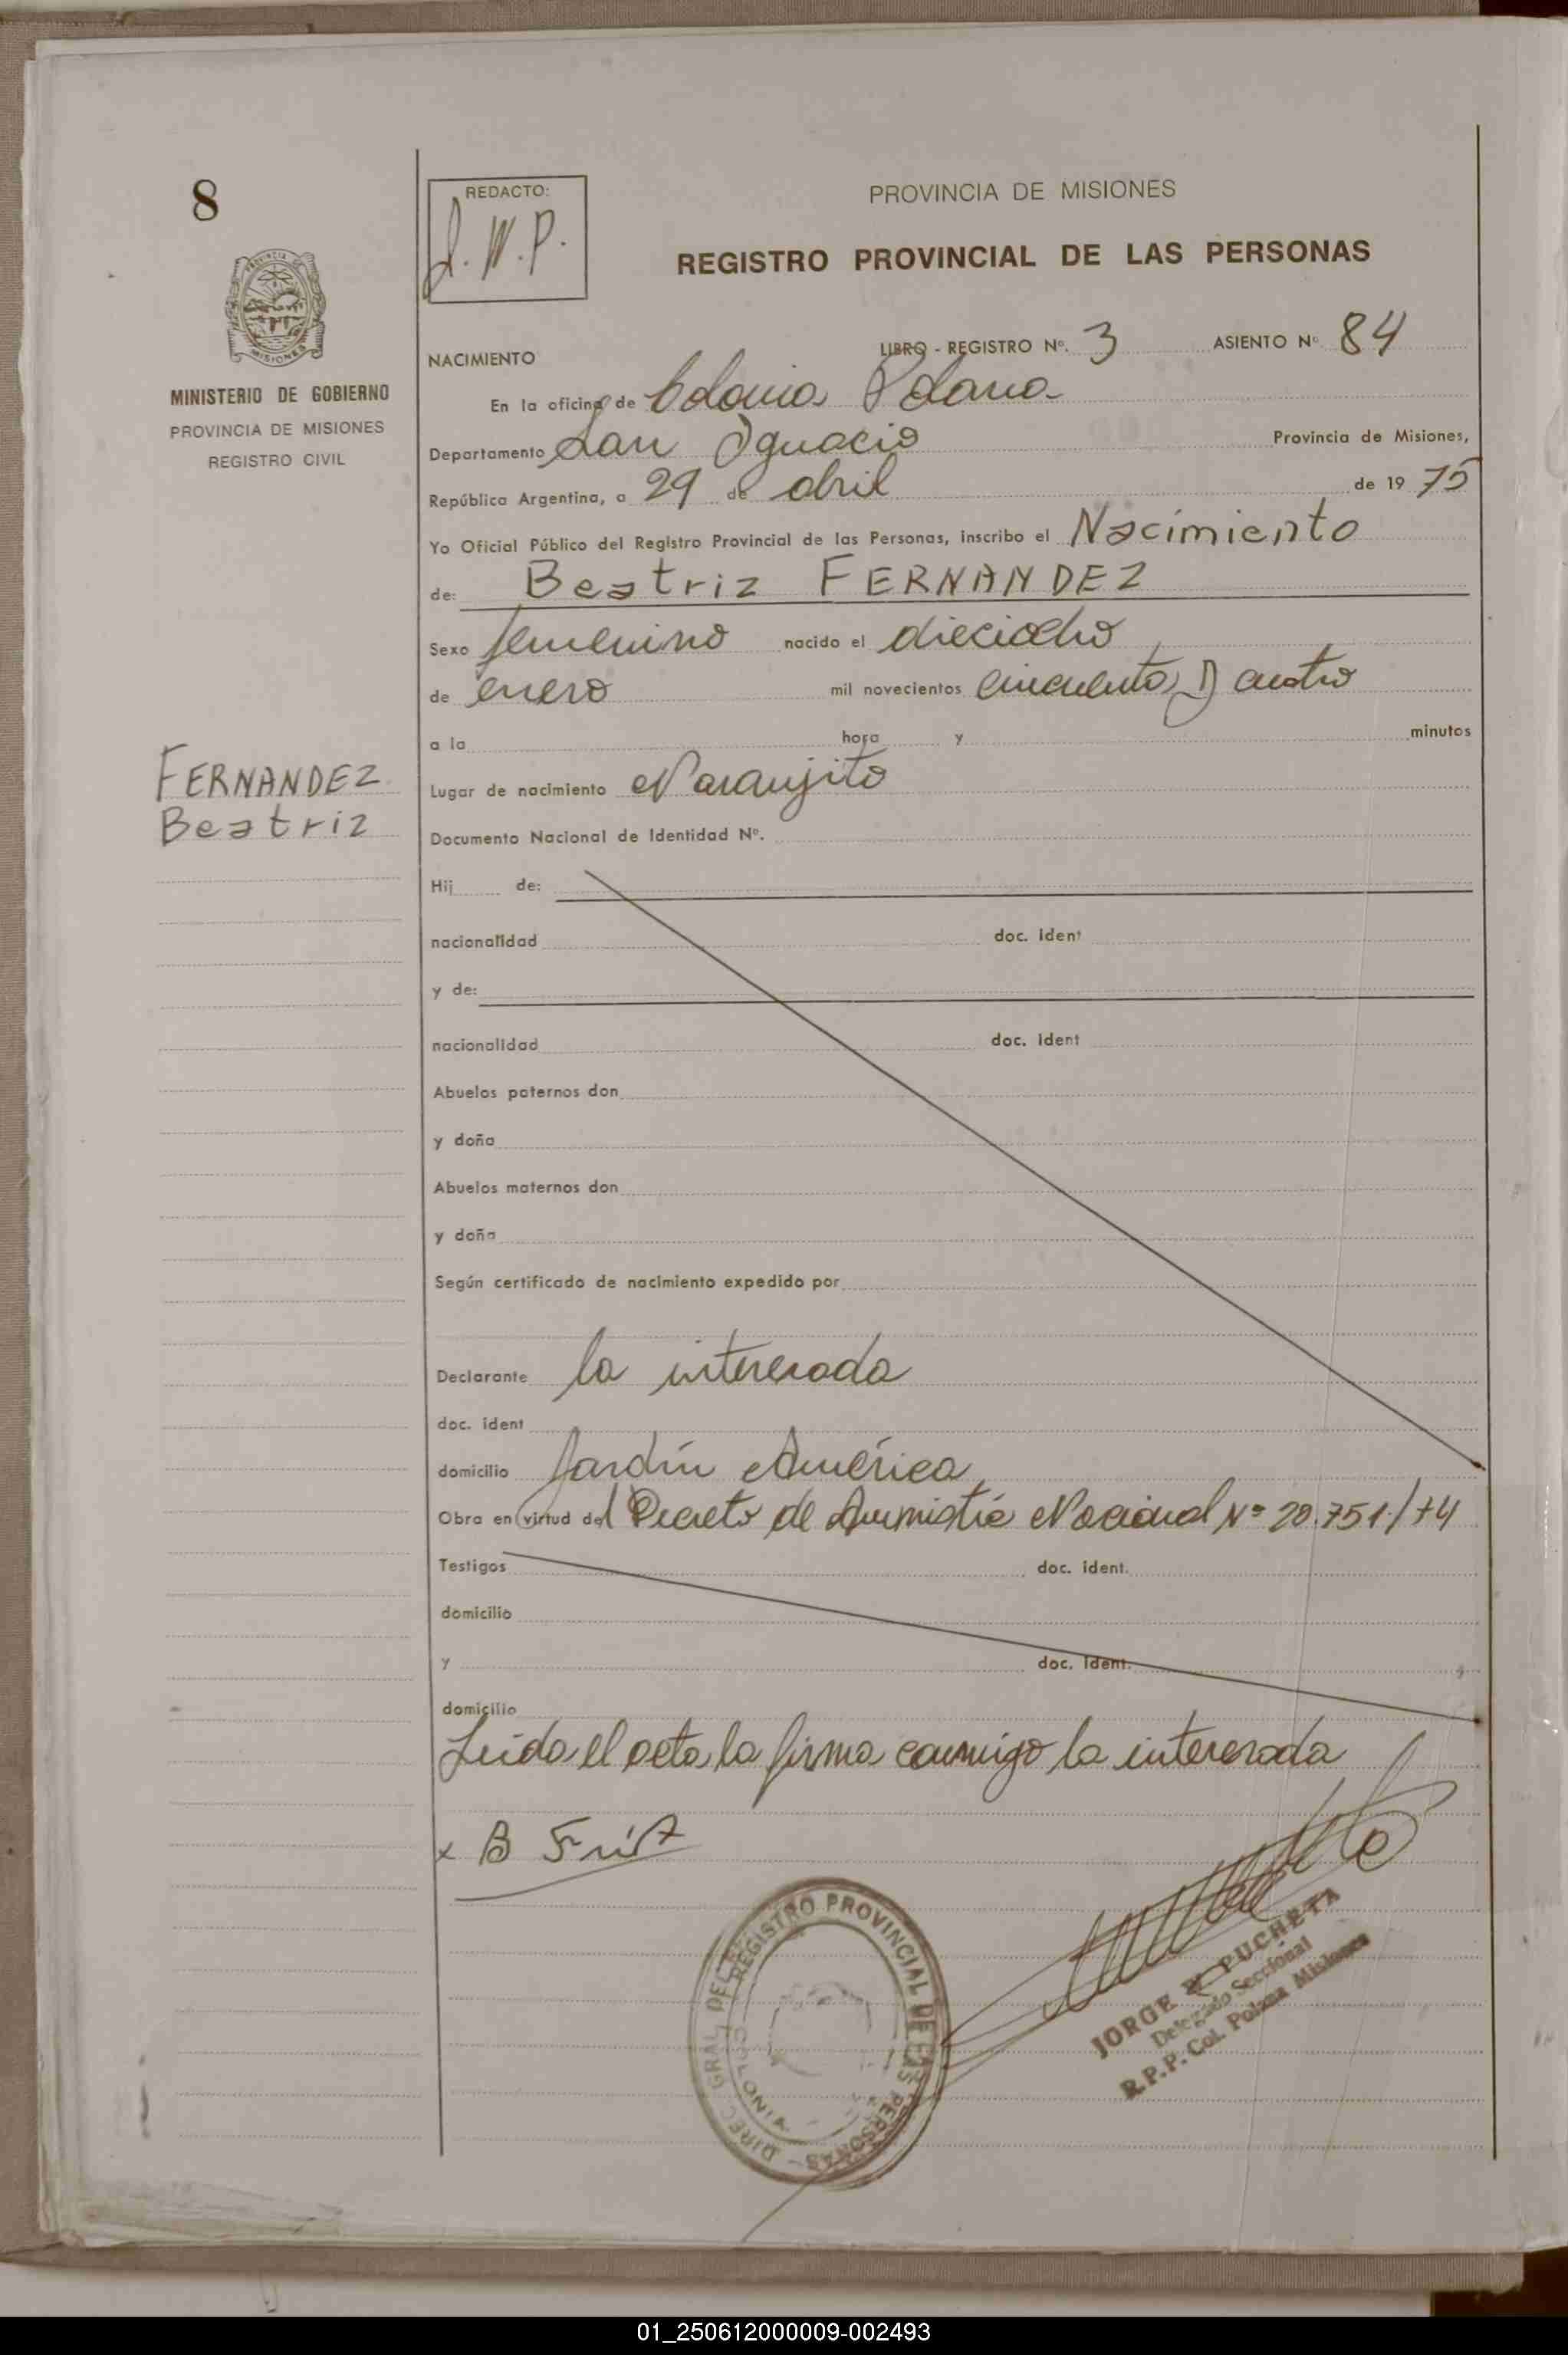 8
REDACTO:
J. W. P.
PROVINCIA DE MISIONES
REGISTRO PROVINCIAL DE LAS PERSONAS
MISIONES
MINISTERIO DE GOBIERNO
PROVINCIA DE MISIONES
REGISTRO CIVIL
NACIMIENTO LIBRO - REGISTRO Nº. 3 ASIENTO Nº 84
En la oficina de Colonia Polana
Departamento San Ignacio Provincia de Misiones,
República Argentina, a 29 de abril de 19 75
Yo Oficial Público del Registro Provincial de las Personas, inscribo el Nacimiento
de: Beatriz FERNANDEZ
Sexo femenino nacido el dieciocho
de enero mil novecientos cincuenta y cuatro
a la hora y minutos
FERNANDEZ
Beatriz
Lugar de nacimiento Naranjito
Documento Nacional de Identidad Nº.
Hij de:
nacionalidad doc. ident
y de:
nacionalidad doc. ident
Abuelos paternos don
y doña
Abuelos maternos don
y doña
Según certificado de nacimiento expedido por
Declarante la interesada
doc. ident
domicilio Jardín América
Obra en virtud del Decreto de Amnistía Nacional Nº 20.751/74
Testigos doc. ident.
domicilio
y doc. ident.
domicilio
Leida el acta la firma conmigo la interesada
x B
DIREC. GRAL. DEL REGISTRO PROVINCIAL DE LAS PERSONAS
COLONIA
JORGE W. PUCHETA
Delegado Seccional
R.P.P. Col. Polana Misiones
01_250612000009-002493